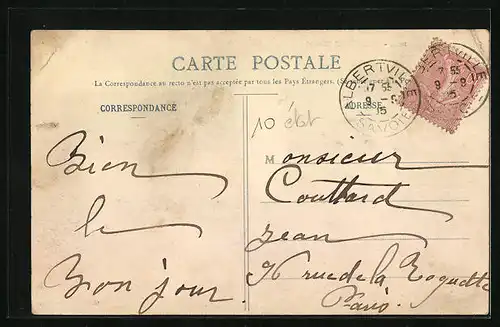 CARTE POSTALE
La Correspondance au recto n'est pas acceptée par tous les Pays Étrangers.
CORRESPONDANCE
ADRESSE
ALBERTVILLE
17 35
9 - 9
15
SAVOIE
ALBERTVILLE
9 - 9
10 état
Bien
le
Bon jour.
Monsieur
Couttard
Jean
76 rue de la Roquette
Paris.